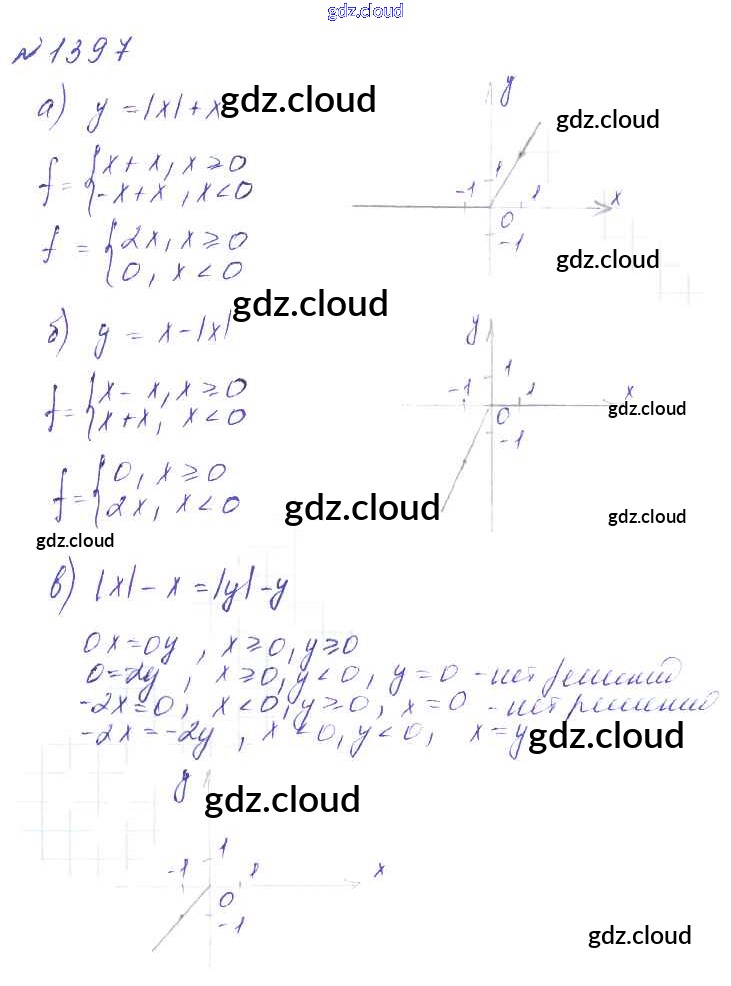 gdz.cloud
№1397
а) y = |x| + x gdz.cloud
f = { x + x, x ≥ 0
-x + x, x < 0
f = { 2x, x ≥ 0
0, x < 0
y
gdz.cloud
-1 1 1 x
0
-1
gdz.cloud
gdz.cloud
б) y = x - |x|
f = { x - x, x ≥ 0
x + x, x < 0
f = { 0, x ≥ 0
2x, x < 0
y
1
-1 1 x
0 gdz.cloud
-1
gdz.cloud
gdz.cloud
gdz.cloud
в) |x| - x = |y| - y
0x = 0y, x ≥ 0, y ≥ 0
0 = 2y, x ≥ 0, y < 0, y = 0 - нет решений
-2x = 0, x < 0, y ≥ 0, x = 0 - нет решений
-2x = -2y, x < 0, y < 0, x = y gdz.cloud
y gdz.cloud
1
-1 1 x
0
-1
gdz.cloud